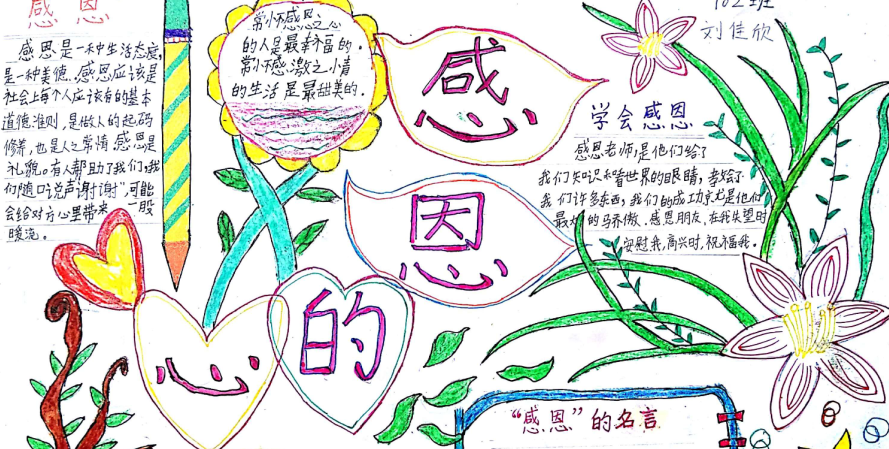 感恩
感恩是一种生活态度,
是一种美德.感恩应该是
社会上每个人应该有的基本
道德准则,是做人的起码
修养,也是人之常情.感恩是
礼貌.有人帮助了我们,我
们随口说声“谢谢”,可能
会给对方心里带来一股
暖流。
常怀感恩之心
的人是最幸福的.
常怀感激之情
的生活是最甜美的.
感
恩
的
心
102班
刘佳欣
学会感恩
感恩老师,是他们给了
我们知识和看世界的眼睛,
我们许多东西,我们的成功
最 的 傲.感恩朋友,在我失望时
安慰我,高兴时,祝福我.
“感恩”的名言